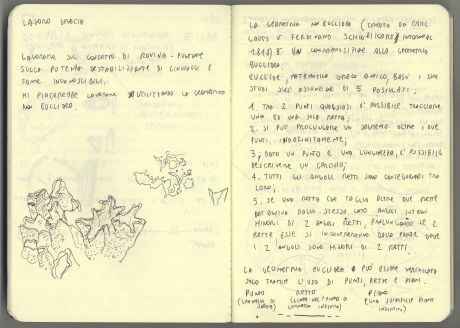 LAVORO GRECIA
LAVORARE SUL CONCETTO DI ROVINA - PUNTARE
SULLA POTENZA DESTABILIZZANTE DI LINGUAGGI E
FORME INCONOSCIBILI.
MI PIACEREBBE LAVORARE UTILIZZANDO LA GEOMETRIA
NON EUCLIDEA.
LA GEOMETRIA NON EUCLIDEA (CREATA DA CARL
GAUSS E FERDINAND SCHWEIKART INTORNO AL
1818) È IN CONTRAPPOSIZIONE ALLA GEOMETRIA
EUCLIDEA.
EUCLIDE, MATEMATICO GRECO ANTICO, BASÒ I SUOI
STUDI SULL'ASSUNZIONE DI 5 POSTULATI:
1. TRA 2 PUNTI QUALSIASI È POSSIBILE TRACCIARE
UNA ED UNA SOLA RETTA;
2. SI PUÒ PROLUNGARE UN SEGMENTO OLTRE I DUE
PUNTI INDEFINITAMENTE;
3. DATO UN PUNTO E UNA LUNGHEZZA, È POSSIBILE
DESCRIVERE UN CERCHIO;
4. TUTTI GLI ANGOLI RETTI SONO CONGRUENTI TRA
LORO;
5. SE UNA RETTA CHE TAGLIA ALTRE DUE RETTE
DETERMINA DALLO STESSO LATO ANGOLI INTERNI
MINORI DI 2 ANGOLI RETTI, PROLUNGANDO LE 2
RETTE ESSE SI INCONTRERANNO DALLA PARTE DOVE
I 2 ANGOLI SONO MINORI DI 2 RETTI.
LA GEOMETRIA EUCLIDEA PUÒ ESSERE VERIFICATA
SOLO TRAMITE L'USO DI PUNTI, RETTE E PIANI.
PUNTO RETTA PIANO
(UNA SUPERFICIE PIANA
INFINITA)